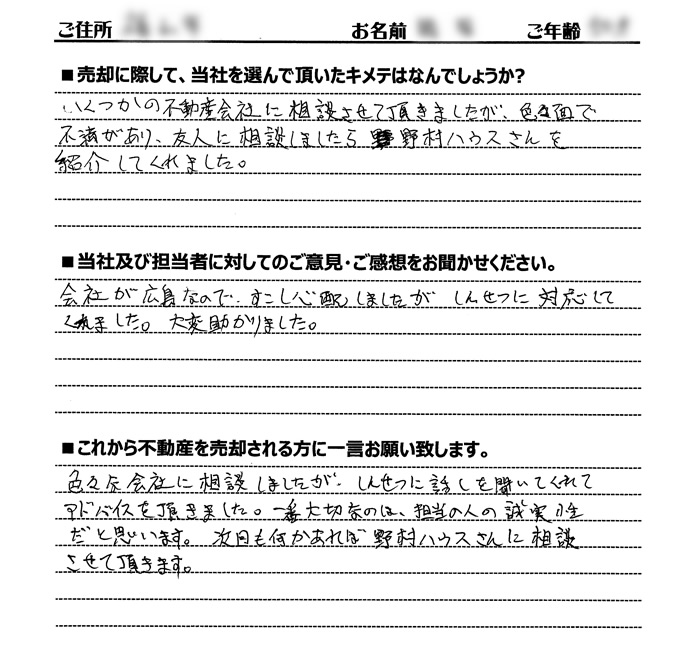 ご住所 お名前 ご年齢
■売却に際して、当社を選んで頂いたキメテはなんでしょうか?
いくつかの不動産会社に相談させて頂きましたが、色々面で
不満があり、友人に相談しましたら 野村ハウスさんを
紹介してくれました。
■当社及び担当者に対してのご意見・ご感想をお聞かせください。
会社が広島なので、すこし心配しましたが しんせつに対応して
くれました。大変助かりました。
■これから不動産を売却される方に一言お願い致します。
色々な会社に相談しましたが、しんせつに話しを聞いてくれて
アドバイスを頂きました。一番大切なのは、担当の人の誠実性
だと思います。次回も何かあれば野村ハウスさんに相談
させて頂きます。